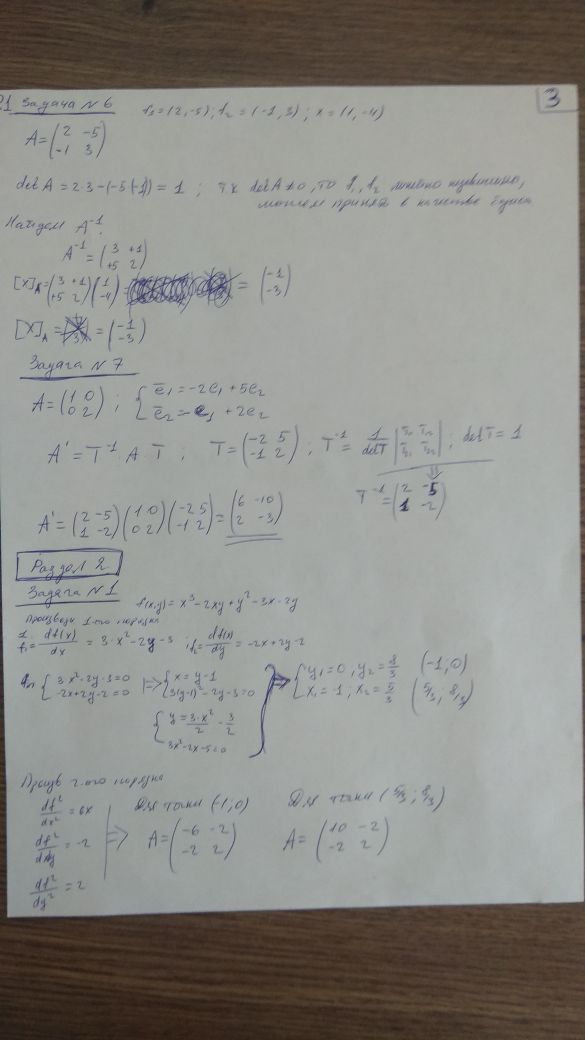 21 Задача №6 f₁=(2,-5); f₂=(-1,3); x=(1,-4) 3
A=(2 -5
-1 3)
det A = 2·3-(-5(-1)) = 1 ; тк det A≠0, то f₁, f₂ линейно независимы,
можем принять в качестве базиса
Найдем A⁻¹:
A⁻¹=(3 +1
+5 2)
[x]_A=(3 +1
+5 2)(1
-4)= = (-1
-3)
[x]_A = = (-1
-3)
Задача №7
A=(1 0
0 2) ; { ē₁=-2e₁+5e₂
ē₂=-e₁+2e₂
A'=T⁻¹·A·T ; T=(-2 5
-1 2) ; T⁻¹= 1/detT ; det T=1
T⁻¹=(2 -5
1 -2)
A'=(2 -5
1 -2)(1 0
0 2)(-2 5
-1 2)=(6 -10
2 -3)
Раздел 2
Задача №1 f(x,y)=x³-2xy+y²-3x-2y
Производн 1-ого порядка
df(x)/dx = 3·x²-2y-3 ; df(x)/dy = -2x+2y-2
{ 3·x²-2y-3=0
-2x+2y-2=0 => { x=y-1
3(y-1)²-2y-3=0
{ y=3·x²/2 - 3/2
3x²-2x-5=0
} => { y₁=0 ; y₂=8/3 (-1;0)
x₁=-1 ; x₂=5/3 (5/3; 8/3)
Произв 2-ого порядка
df²/dx²=6x Для точки (-1;0) Для точки (5/3; 8/3)
df²/dxdy=-2 => A=(-6 -2
-2 2) A=(10 -2
-2 2)
df²/dy²=2